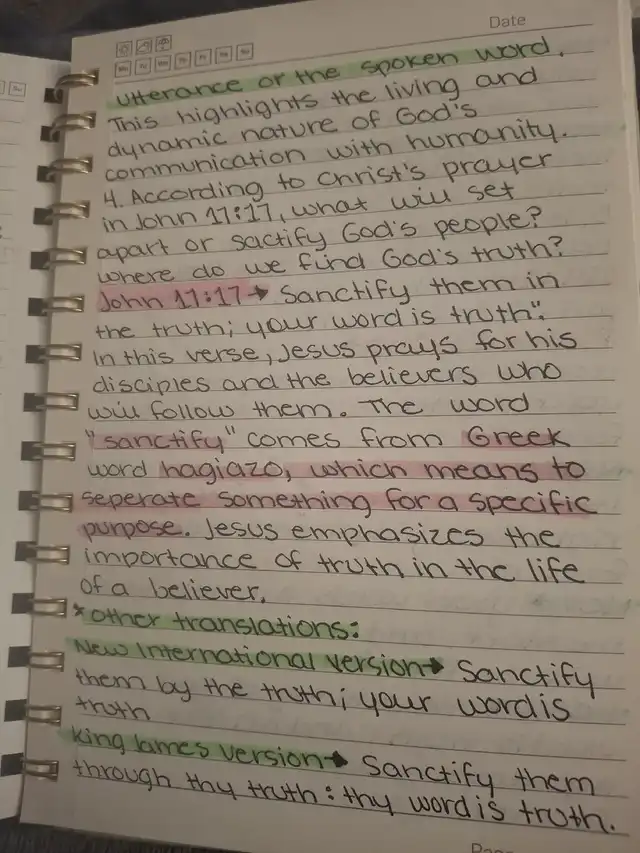 Date
utterance or the spoken word.
This highlights the living and
dynamic nature of God's
communication with humanity.
4. According to Christ's prayer
in John 17:17, what will set
apart or sactify God's people?
where do we find God's truth?
John 17:17→ Sanctify them in
the truth; your word is truth".
In this verse, Jesus prays for his
disciples and the believers who
will follow them. The word
"sanctify" comes from Greek
word hagiazo, which means to
seperate something for a specific
purpose. Jesus emphasizes the
importance of truth in the life
of a believer.
*other translations:
New International version→ Sanctify
them by the truth; your word is
truth
King James version→ Sanctify them
through thy truth: thy word is truth.